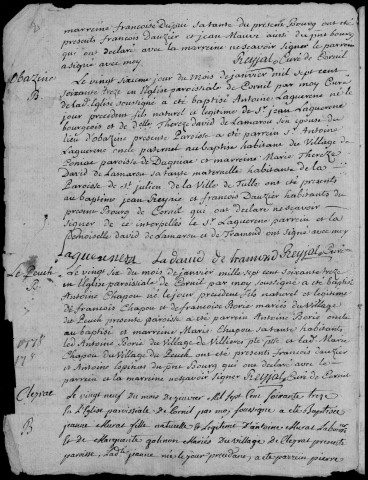 marreine françoise Duzau sa tante du present Bourg ont eté
presents francois Dauzier et jean Mauve aussi du pnt bourg
qui ont declaré avec la marreine ne scavoir signer le parrein
a signé avec moy Reyjal, Curé de Cornil
Obazine
B
Le vingt sixieme jour du mois de janvier mil sept cent
soixante treze en l'eglise paroissiale de Cornil par moy Curé
de lad. eglise soussigné a eté baptisé Antoine Laguerene né le
jour precedent fils naturel et legitime de Sr jean Laguerene
bourgeois et de dlle Therese david de Lamarou son épouse du
lieu d'obazine presente Paroisse a eté parrein Sr Antoine
Laguerene oncle paternel au baptisé habitant du Village de
Coniac paroisse de Dagniac et marreine Marie Thereze
David de Lamarou sa tante maternelle habitante de la
Paroisse de St julien de la Ville de Tulle ont eté presents
au baptême jean Reyjais et francois Dauzier habitants du
present Bourg de Cornil qui ont declaré ne scavoir
signer de ce interpellés le Sr Laguerene parrein et la
Demoiselle david de Lamarou et de Tramond ont signé avec moy
Laguerenne La david de tramond Reyjal, Curé
Le Peuch
Le vingt six du mois de janvier mille sept cent Soixante treze
en l'Eglise paroissiale de Cornil par moy soussigné a eté baptisé
Antoine Chapou né le jour precedent fils naturel et legitime
de françois Chapou et de francoise Borie mariés du Village
du Peuch presente paroisse a eté parrein Antoine Borie oncle
au baptisé et marreine Marie Chapou sa tante habitants
led. Antoine Borie du Village de Villieres pte psse a lad. Marie
Chapou du Village du Peuch ont eté presents francois dauzier
et Antoine lopinas du pnt Bourg qui ont declaré avec le
parrein et la marreine ne scavoir signer Reyjal, Curé de Cornil
Cleyrat
B
Le vingt neuf du mois de janvier mil Sept Cent soixante treze
en l'Eglise paroissiale de Cornil par moy soussigné a eté Baptisée
jeanne Muras fille naturelle & legitime d'antoine Muras Laboureur
& de Marguerite galinon Mariés du village de Cleyrat presente
paroisse, lad.te jeanne née le jour precedant, a eté parrain pierre